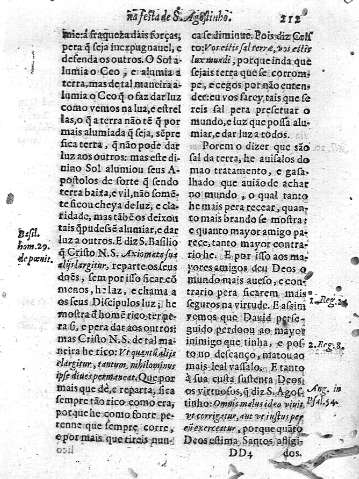 na festa de S. Agostinho. 212
me: á fraqueza dais forças,
pera q̃ seja inexpugnauel, e
defenda os outros. O Sol a-
lumia o Ceo, e alumia a
terra, mas de tal maneira a-
lumia o Ceo q̃ o faz dar luz
como vemos na lũa, e estrel
las, o q̃ a terra não tẽ q̃ por
mais alumiada q̃ seja, sẽpre
fica terra, q̃ não pode dar
luz aos outros: mas este di-
uino Sol alumiou seus A-
postolos de sorte q̃ sendo
terra baixa, e vil, não sòmẽ-
te ficou cheya de luz, e cla-
ridade, mas tãbẽ os deixou
tais q̃ pudesse alumiar, e dar
luz a outros. E diz S. Basilio
q̃ Cristo N. S. Axiomata sua
alijs largitur, reparte os seus
dões, sem por isso ficar cõ
menos, he luz, e chama a
os seus Discipulos luz, he
mostra q̃ he rico, tẽ pe-
ra si, e pera dar aos outros:
mas Cristo N. S. de tal ma-
neira he rico: Vt quantũ alijs
elargitur, tantum, nihilominus
ipse diues permaneat. Que por
mais que dè, e reparta, fica
sempre tão rico como era,
porque he como fonte pe-
renne que sempre corre,
e por mais que tireis nun-
ca
Basil.
hom. 29.
de pœnit.
ca se diminue. Pois diz Cris-
to: Vos estis sal terræ, vos estis
lux mundi, porque inda que
sejais terra que se corrom-
pe, e cegos por não enten-
derei; eu vos farey, tais que se
reis sal pera preseruar o
mundo, e luz que possa alu-
miar, e dar luz a todos.
Porem o dizer que são
sal da terra, he auisalos do
mao tratamento, e gasa-
lhado que auião de achar
no mundo, o qual tanto
he mais pera recear, quan-
to mais brando se mostra:
e quanto mayor amigo pa-
rece, tanto mayor contra-
rio he. E por isso aos ma-
yores amigos deu Deos o
mundo mais auesso, e con-
trario pera ficarem mais
seguros na virtude. E assim
vemos que Dauid perse-
guido perdoou ao mayor
inimigo que tinha, e pos-
to no descanço, matou ao
mais leal vassalo. E tanto
à sua custa sustenta Deos
os virtuosos, q̃ diz S. Agos-
tinho: Omnis malus ideo viuit
vt corrigatur, aut vt iustus per
eũ exerceatur, porque quãto
Deos estima Santos afligi-
DD4 dos.
1. Reg. 24.
2. Reg. 8.
Aug. in
Psal. 54.